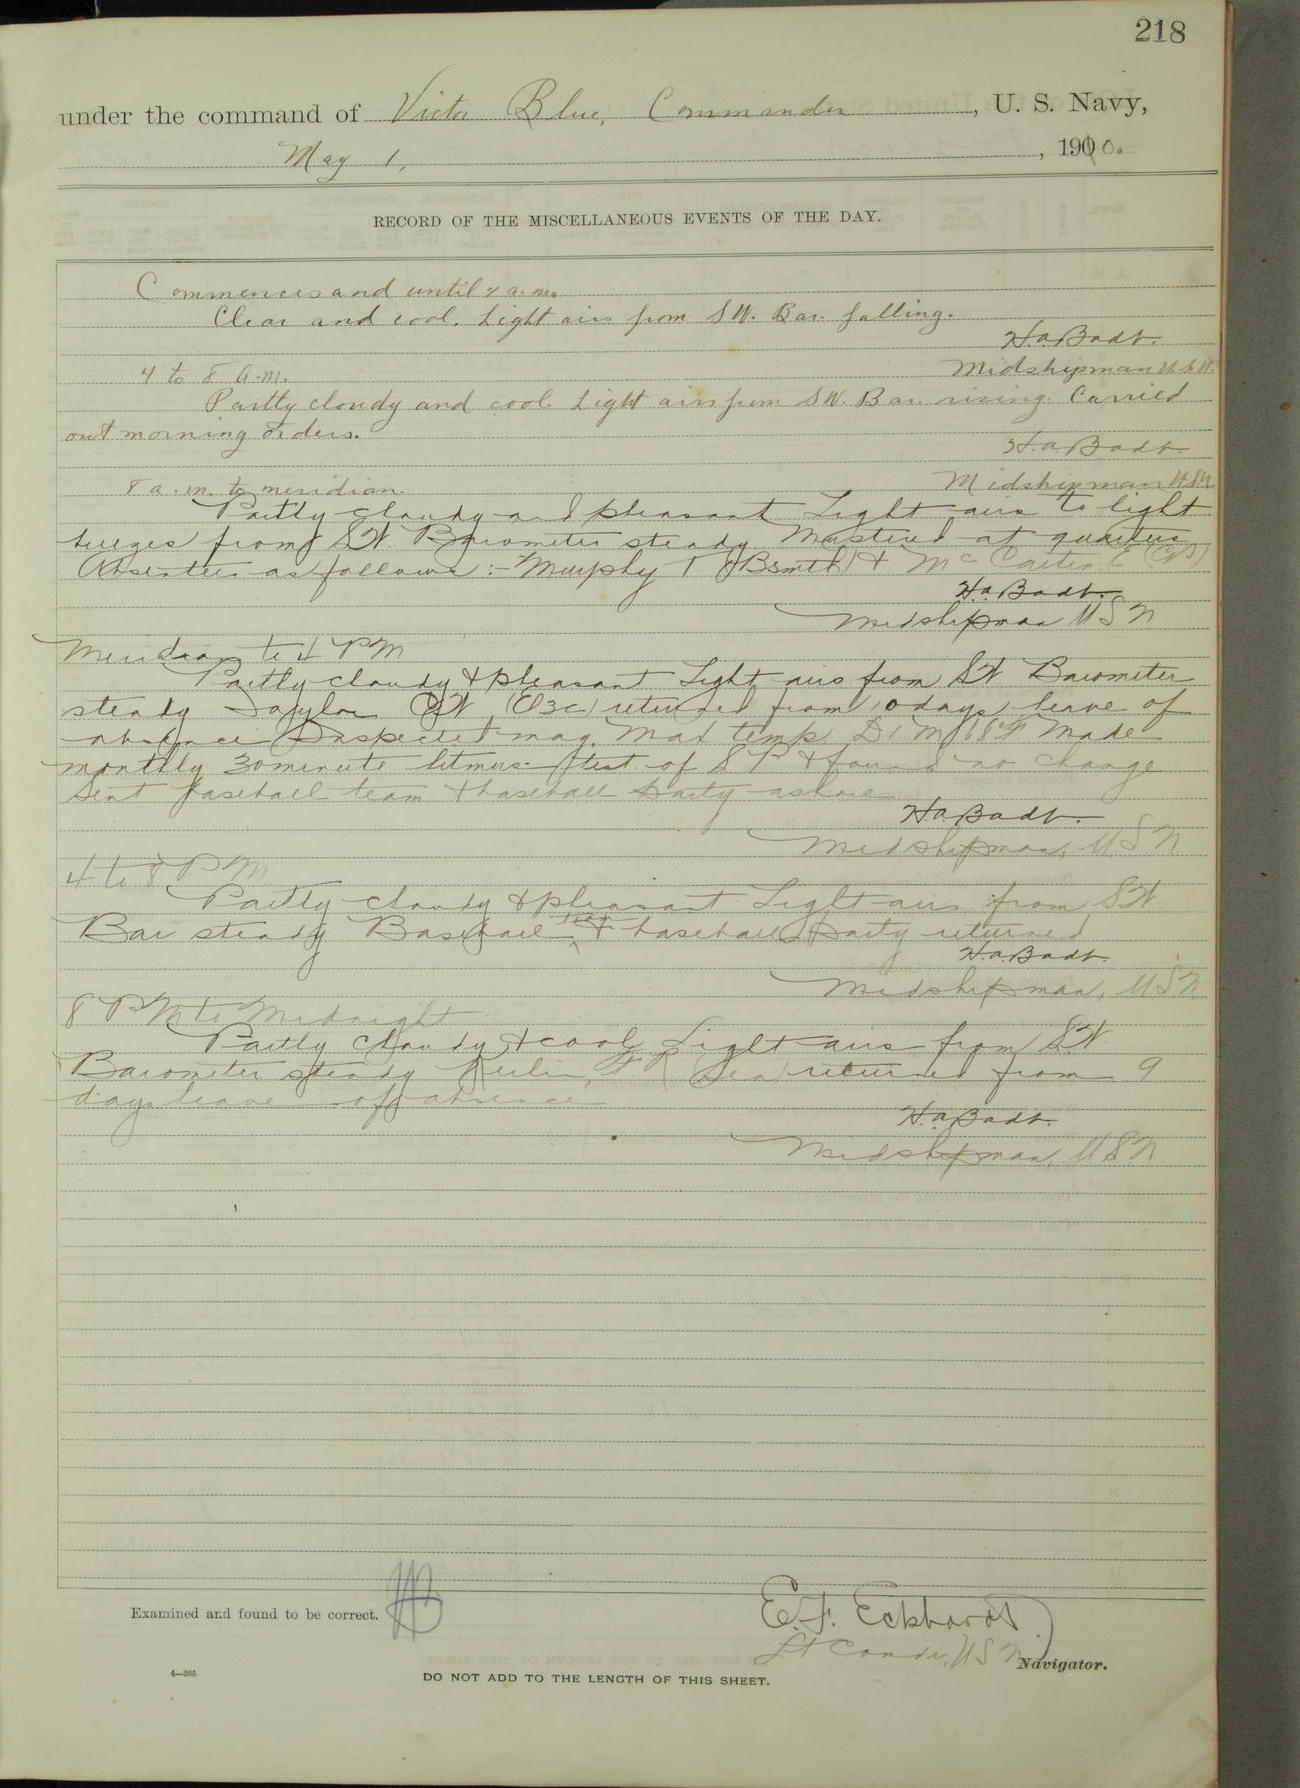 218
under the command of Victor Blue, Commander, U. S. Navy,
May 1, 1910.
RECORD OF THE MISCELLANEOUS EVENTS OF THE DAY.
Commences and until 4 a.m.
Clear and cool. Light airs from SW. Bar. falling.
H.a.Badt.
4 to 8 a.m.
Midshipman U.S.N.
Partly cloudy and cool. Light airs from SW. Bar. rising. Carried
out morning orders.
H.a.Badt.
8 a.m. to meridian.
Midshipman U.S.N.
Partly cloudy and pleasant Light airs to light
breezes from SW Barometer steady Mustered at quarters
Absentees as follows:- Murphy T (Bsmth) &
H.a.Badt.
Midshipman USN
Meridian to 4 PM
Partly cloudy & pleasant Light airs from SW Barometer
steady Taylor (El3c) returned from 10 days leave of
absence Inspected mag. Max temp. Made
monthly 30 minute litmus test of SP & found no change
Sent baseball team & baseball party ashore
H.a.Badt.
Midshipman, USN
4 to 8 PM
Partly cloudy & pleasant Light airs from SW
Bar steady Baseball team & baseball party returned
H.a.Badt.
Midshipman, USN
8 PM to Midnight
Partly cloudy & cool Light airs from SW
Barometer steady (Sea) returned from 9
days leave of absence
H.a.Badt.
Midshipman, USN
Examined and found to be correct.
E.F. Eckhardt
Lt Comdr. USN Navigator.
4—265
DO NOT ADD TO THE LENGTH OF THIS SHEET.